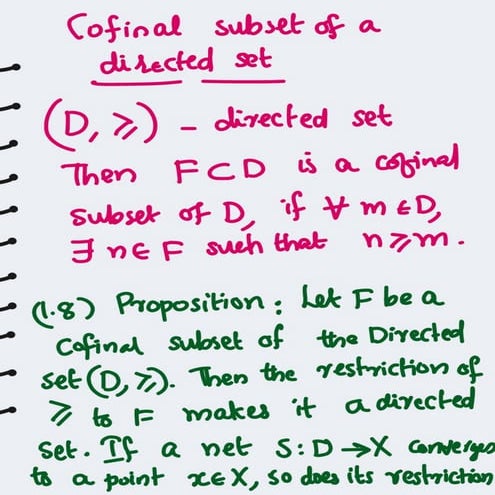 Cofinal subset of a
directed set
(D, ≥) - directed set
Then F⊂D is a cofinal
subset of D, if ∀ m∈D,
∃ n∈F such that n≥m.
(1.8) Proposition: Let F be a
Cofinal subset of the Directed
set (D, ≥). Then the restriction of
≥ to F makes it a directed
set. If a net S: D→X converges
to a point x∈X, so does its restriction